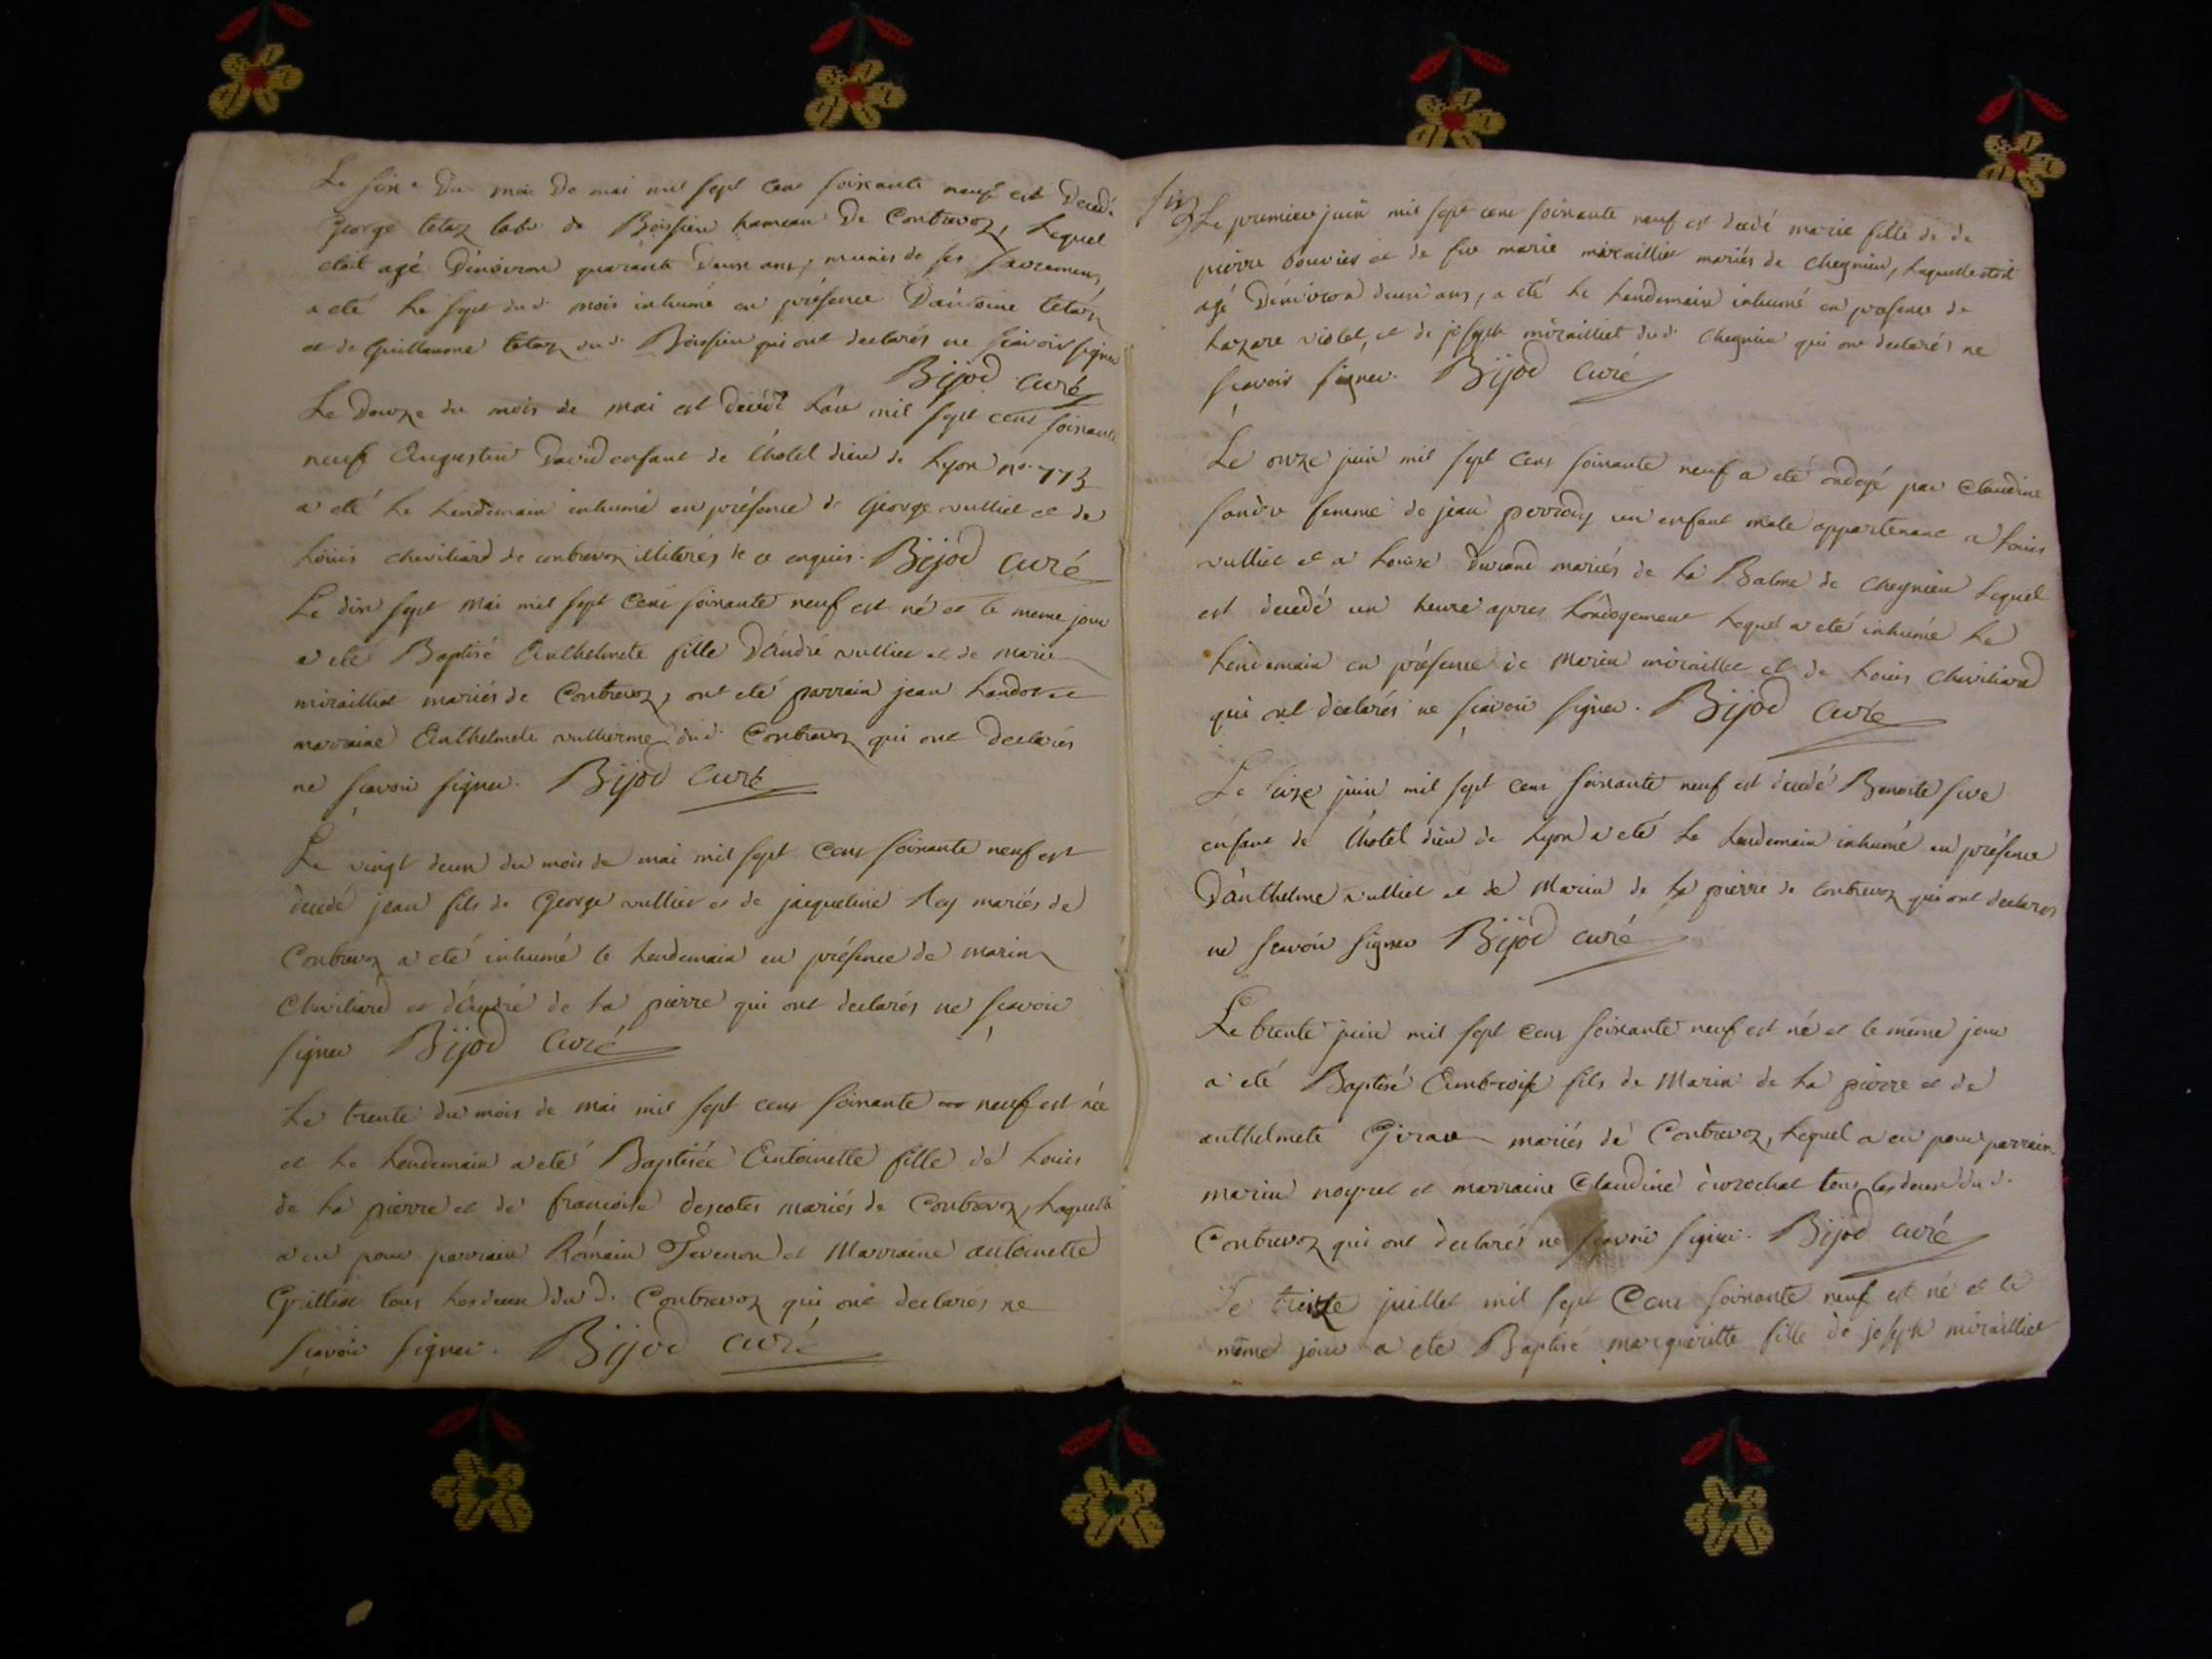 Le sixe du mois de mai mil sept cent soixante neuf est décedé
George tetaz labr de Boissieu hameau de Contrevoz, Lequel
étoit agé Dénviron quarante deux ans, munis de ses sacremens
a eté Le sept dud. mois inhumé en présence Dántoine tetaz
et de Guillaume tetaz dud. Boissieu qui ont declarés ne sçavoir signer
Bijod curé
Le douze du mois de mai est decédé Lán mil sept cent soixante
neuf Augustin David enfant de L'hotel dieu de Lyon no. 773
a eté Le Lendemain inhumé en présence de George vulliet et de
Louis chevilliard de contrevoz illiterés de ce enquis. Bijod curé
Le dix sept mai mil sept Cent soixante neuf est né et le meme jour
a eté Baptisé Anthelmete fille D'André vulliet et de Marie
mirailliet mariés de Contrevoz, ont eté parrain jean Landot et
marraine Anthelmete vullierme dud. Contrevoz qui ont declarés
ne sçavoir signer. Bijod curé
Le vingt deux du mois de mai mil sept Cent soixante neuf est
decedé jean fils de George vulliet et de jacqueline Rey mariés de
Contrevoz a eté inhumé le Lendemain en présence de marin
Chevilliard et d'André de La pierre qui ont declarés ne sçavoir
signer Bijod Curé
Le trente du mois de mai mil sept cent soixante neuf est née
et Le Lendemain a eté Baptisée Antoinette fille de Louis
de La pierre et de francoise descotes mariés de Contrevoz, Laquelle
a eu pour parrain Romain Tevenon et Marraine antoinette
Grilliet tous Les deux dud. Contrevoz qui ont declarés ne
sçavoir signer. Bijod curé
Le premier juin mil sept cent soixante neuf est decedé marie fille de de
pierre bouvier et de fue marie mirailliet mariés de Chegnieu, Laquelle etoit
agé Dénviron deux ans, a eté Le Lendemain inhumé en presence de
Lazare violet, et de joseph mirailliet dud. Chegnieu qui ont declarés ne
scavoir signer. Bijod Curé
Le onze juin mil sept Cent soixante neuf a eté ondoyé par Claudine
femme de jean perrody un enfant male appartenant a Louis
vulliet et a Louise Durand mariés de La Balme de Chegnieu Lequel
est decedé un heure apres Lóndoyement Lequel a eté inhumé Le
Lendemain en présence de Marin mirailliet et de Louis Chevilliard
qui ont declarés ne sçavoir signer. Bijod Curé
Le juin mil sept Cent soixante neuf est decedé Benoite
enfant de L'hotel dieu de Lyon a eté Le Lendemain inhumé en présence
D'ánthelme vulliet et de Marin de La pierre de Contrevoz qui ont declarés
ne sçavoir signer Bijod curé
Le trente juin mil sept Cent soixante neuf est né et le même jour
a eté Baptisé Ambroise fils de Marin de La pierre et de
anthelmete Girau mariés de Contrevoz, Lequel a eu pour parrain
marin noyret et marraine Claudine tous Les deux dud.
Contrevoz qui ont declaré ne sçavoir signer. Bijod curé
Le treize juillet mil sept Cent soixante neuf est né et le
même jour a eté Baptisé marguéritte fille de joseph mirailliet